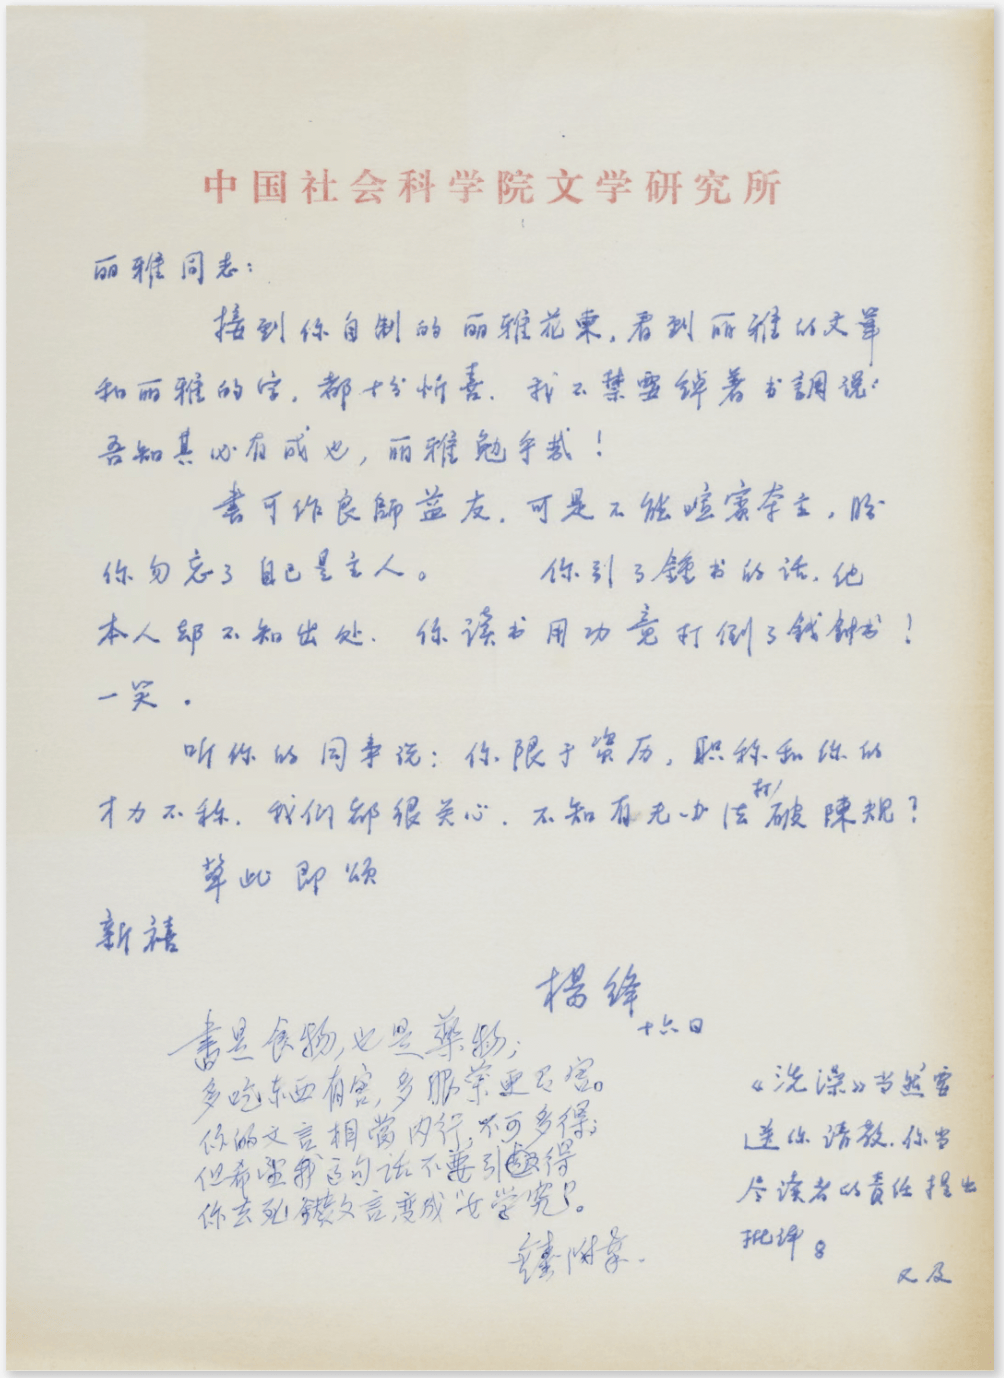 中国社会科学院文学研究所
丽雅同志：
接到你自制的丽雅花束，看到丽雅的文笔
和丽雅的字，都十分忻喜．我不禁要締著书調说：
吾知其必有成也，丽雅勉乎哉！
書可作良師益友．可是不能喧賓奪主，盼
你勿忘了自己是主人。 你引了鍾书的话，他
本人却不知出处．你读书用功竟打倒了钱鍾书！
一笑．
听你的同事说：你限于资历，职称和你的
才力不称．我们都很关心．不知有无办法打破陳规？
草此即頌
新禧
楊绛
十六日
書是食物，也是藥物；
多吃东西有害，多服药更有害。
你的文言相當内行，不可多得；
但希望我这句话不要引得
你去死鑽文言，变成“女学究”。
鍾書附筆．
《洗澡》当然要
送你请教．你当
尽读者的責任提出
批评。
又及